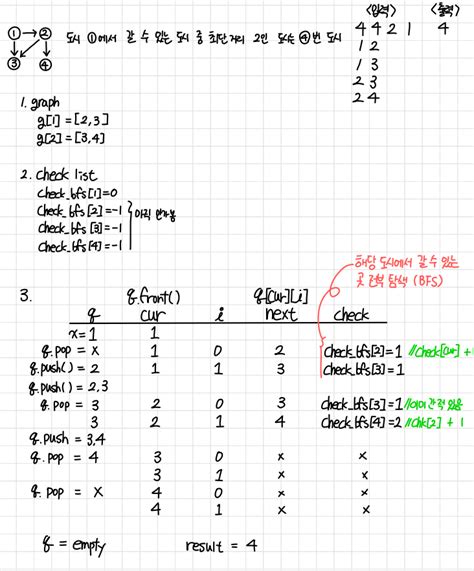 <입력> <출력>
4 4 2 1 4
1 2
1 3
2 3
2 4
1 2
3 4
도시 ①에서 갈 수 있는 도시 중 최단거리 2인 도시는 ④번 도시
1. graph
g[1] = [2,3]
g[2] = [3,4]
2. check list
check_bfs[1]=0
check_bfs[2]=-1
check_bfs[3]=-1
check_bfs[4]=-1
아직 안가봄
해당 도시에서 갈 수 있는
곳 전부 탐색 (BFS)
3. q.front() g[cur][i]
q cur i next check
x=1 1
q.pop = x 1 0 2 check_bfs[2]=1 //check[cur] +
q.push() = 2 1 1 3 check_bfs[3]=1
q.push() = 2,3
q.pop = 3 2 0 3 check_bfs[3]=1 //이미 간적 있음
3 2 1 4 check_bfs[4]=2 //chk[2] + 1
q.push = 3,4
q.pop = 4 3 0 x x
3 1 x x
q.pop = x 4 0 x x
4 1 x x
q = empty result = 4